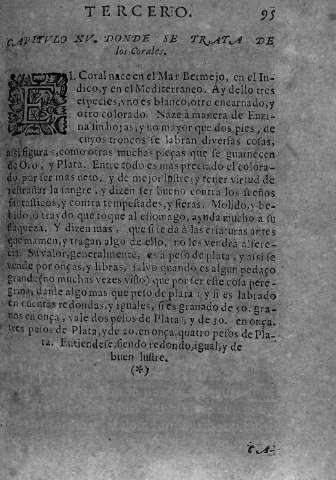 TERCERO. 95
CAPITULO XV. DONDE SE TRATA DE
los Corales.
EL Coral nace en el Mar Bermejo, en el In-
dico, y en el Mediterraneo. Ay dello tres
especies, vno es blanco, otro encarnado, y
otro colorado. Naze à manera de Enzi-
na sin hojas, y no mayor que dos pies, de
cuyos troncos se labran diversas cosas,
assi figuras, como otras muchas pieças que se guarnecen
de Oro, y Plata. Entre todo es mas preciado el colora-
do, por ser mas neto, y de mejor lustre; y tener virtud de
restrañar la sangre, y dizen ser bueno contra los sueños
fantasticos, y contra tempestades, y fieras. Molido, y be-
bido, ò traydo que toque al estomago, ayuda mucho a su
flaqueza. Y dizen mas, que si se dà à las criaturas antes
que mamen, y tragan algo de ello, no les vendrà alferecia.
Su valor, generalmente, es a peso de plata, y assi se
vende por onças, y libras, salvo quando es algun pedaço
grande (no muchas vezes visto) que por ser este cosa pere-
grina, danle algo mas que peso de plata: y si es labrado
en cuentas redondas, y iguales, si es granado de 50. gra-
nos en onça, vale dos pesos de Plata, y de 30. en onça,
tres pesos de Plata, y de 20. en onça, quatro pesos de Pla-
ta. Entiendese, siendo redondo, igual, y de
buen lustre.
(*)
CA-